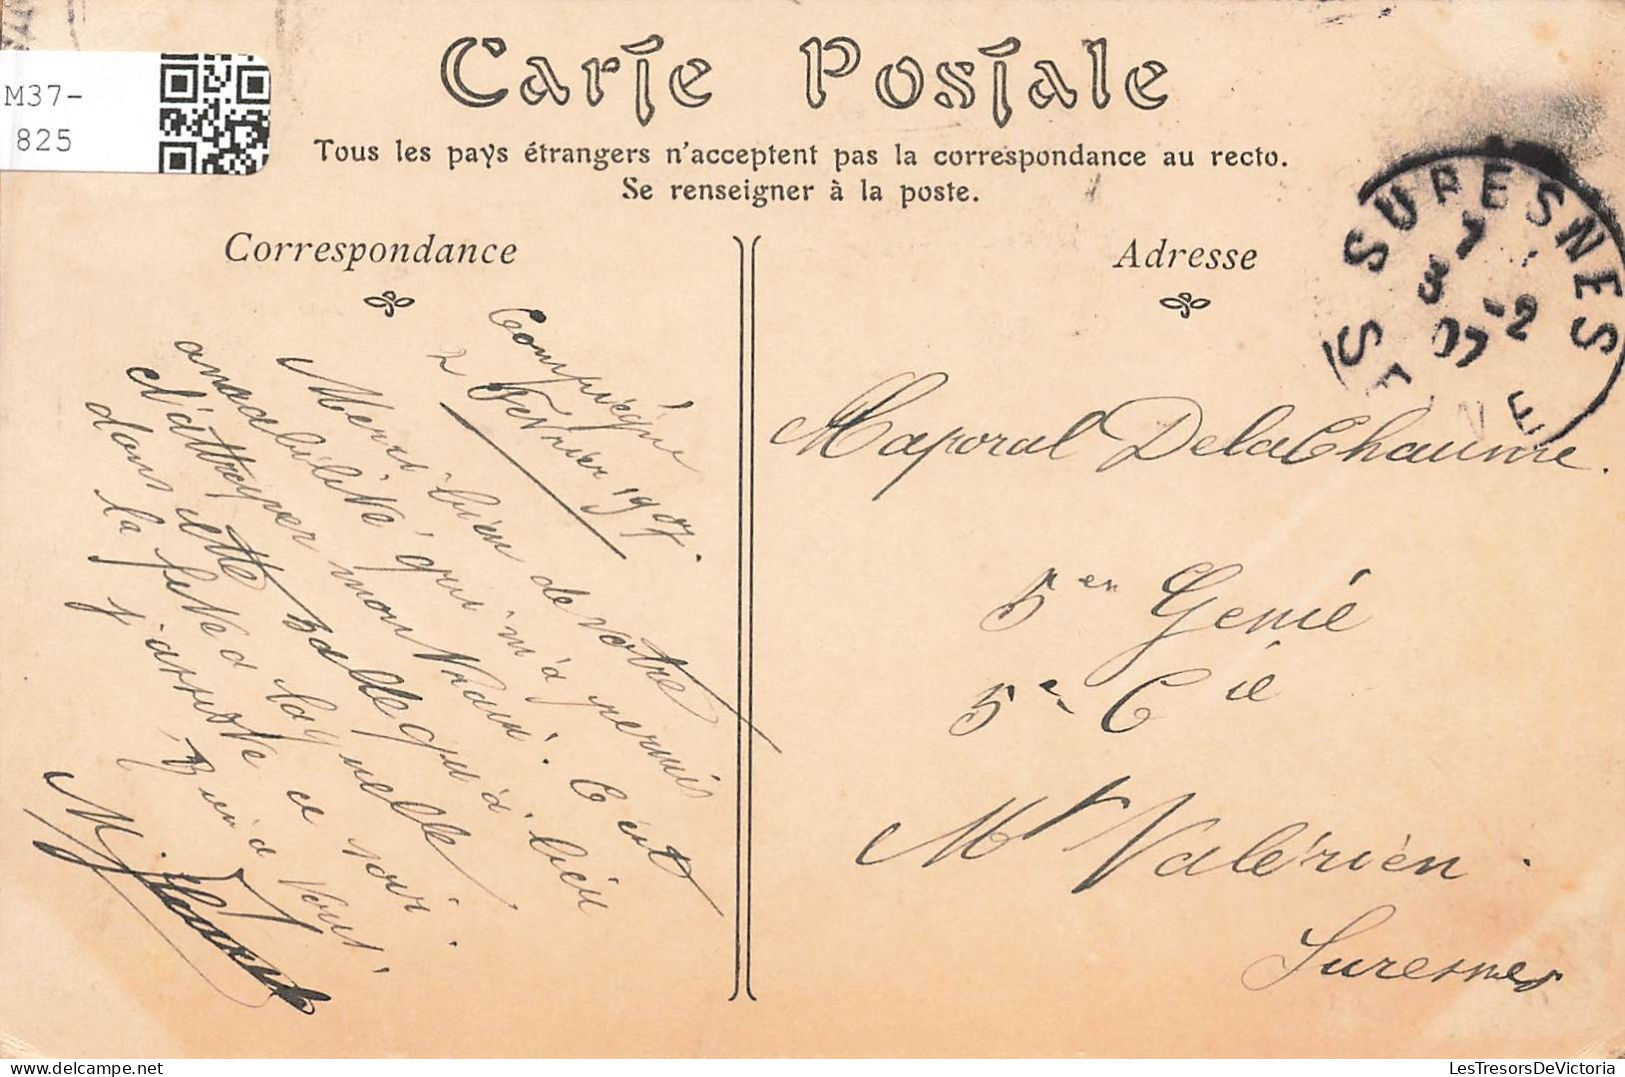 Carte Postale
Tous les pays étrangers n'acceptent pas la correspondance au recto.
Se renseigner à la poste.
M37-
825
Correspondance
Compiègne
2 Février 1907.
Merci bien de votre
amabilité qui m'a permis
d'attraper mon train. C'est
dans cette salle qu'a lieu
la fête à laquelle
j'assiste ce soir.
Bien à vous.
Adresse
SURESNES
7
3 -2
07
SEINE
Caporal Delachaume.
5en Génie
5e Cie
Mt Valérien.
Suresnes
www.LesTresorsDeVictoria